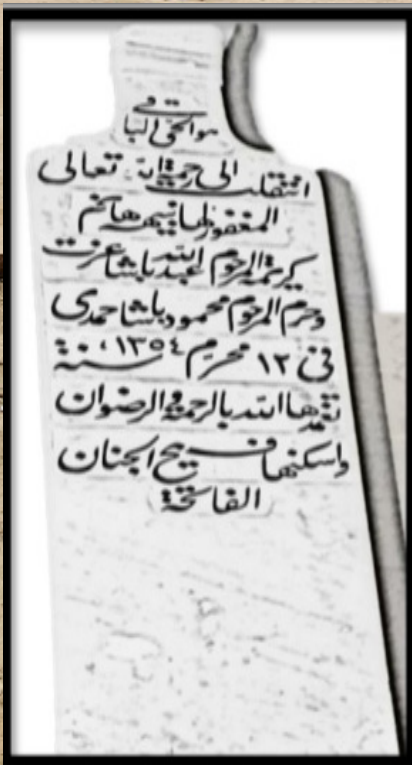 هو الحي الباقي
انتقلت الى رحمة الله تعالى
المغفور لها نبيهه هانم
كريمة المرحوم عبد الله باشا عزت
وحرم المرحوم محمود باشا حمدى
فى ١٢ محرم ١٣٥٤ سنة
تغمدها الله بالرحمة والرضوان
واسكنها فسيح الجنان
الفاتحة